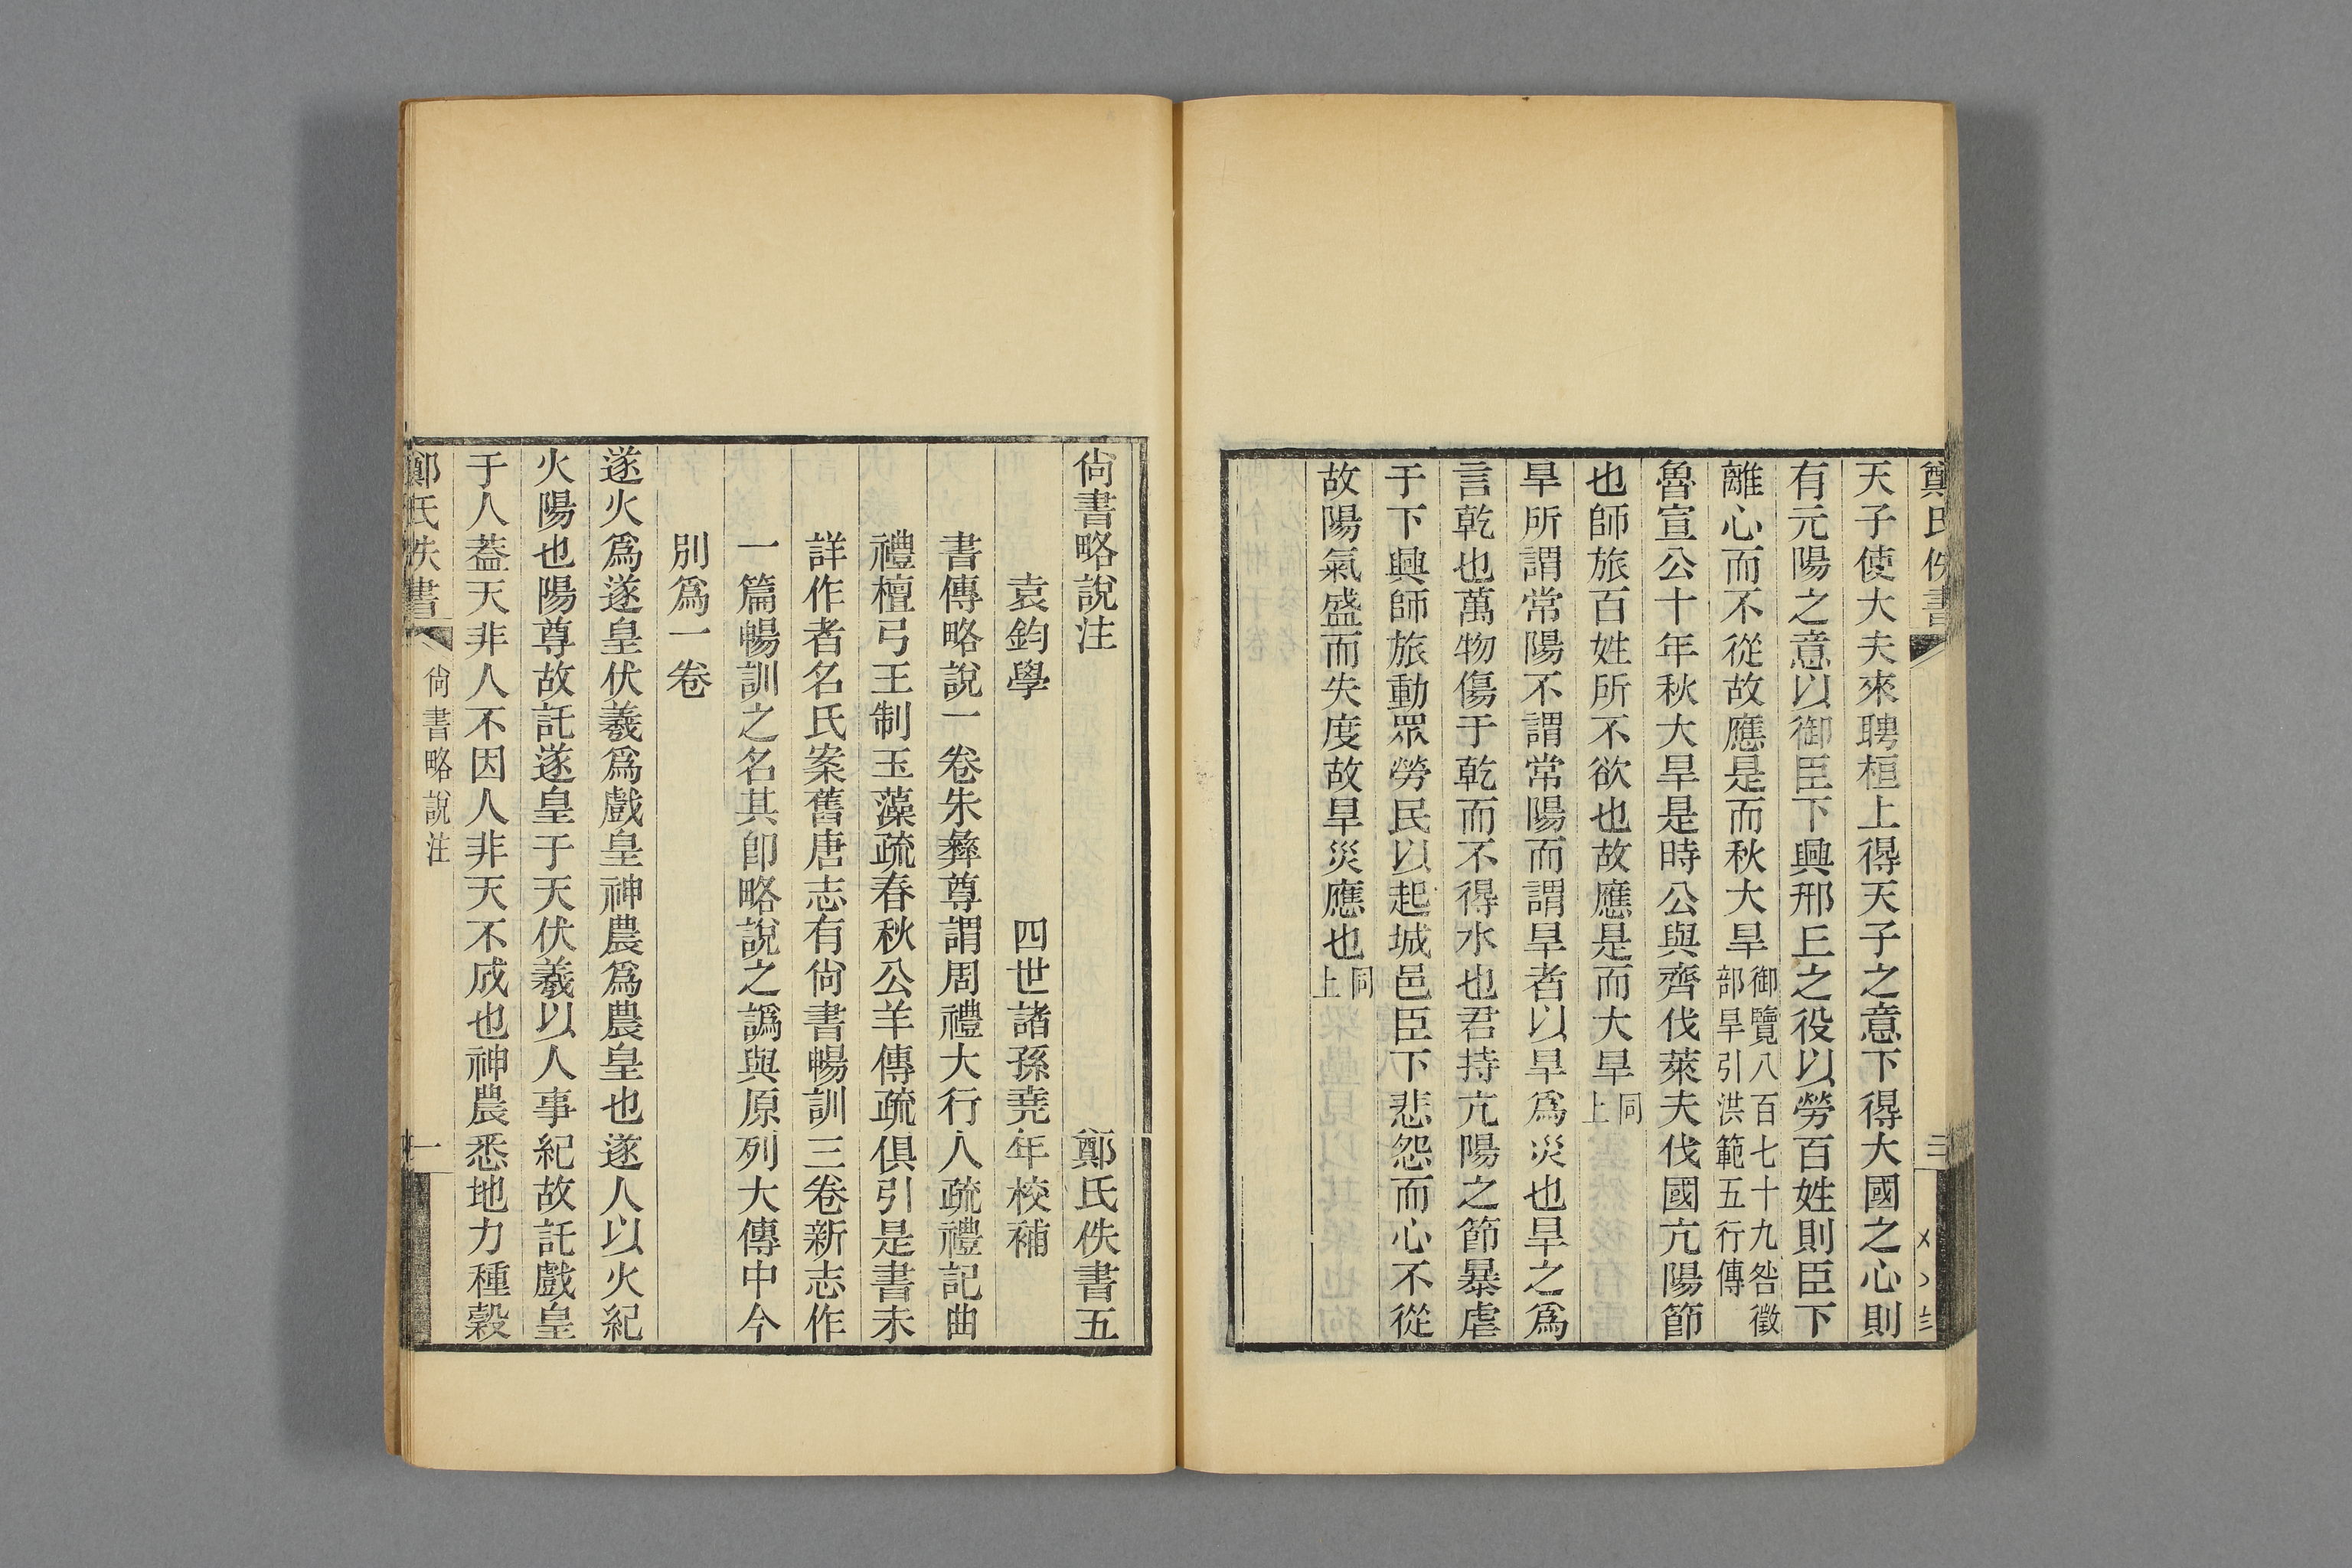 鄭氏佚書
三
天子使大夫來聘桓上得天子之意下得大國之心則
有元陽之意以御臣下興邢丘之役以勞百姓則臣下
離心而不從故應是而秋大旱御覽八百七十九咎徵部旱引洪範五行傳
魯宣公十年秋大旱是時公與齊伐萊夫伐國亢陽節
也師旅百姓所不欲也故應是而大旱同上
旱所謂常陽不謂常陽而謂旱者以旱爲災也旱之爲
言乾也萬物傷于乾而不得水也君持亢陽之節暴虐
于下興師旅動眾勞民以起城邑臣下悲怨而心不從
故陽氣盛而失度故旱災應也同上
尙書略說注 鄭氏佚書五
袁鈞學 四世諸孫堯年校補
書傳略說一卷朱彝尊謂周禮大行人疏禮記曲
禮檀弓王制玉藻疏春秋公羊傳疏俱引是書未
詳作者名氏案舊唐志有尙書暢訓三卷新志作
一篇暢訓之名其卽略說之譌與原列大傳中今
別爲一卷
遂火爲遂皇伏羲爲戲皇神農爲農皇也遂人以火紀
火陽也陽尊故託遂皇于天伏羲以人事紀故託戲皇
于人葢天非人不因人非天不成也神農悉地力種穀
鄭氏佚書
尙書略說注
一